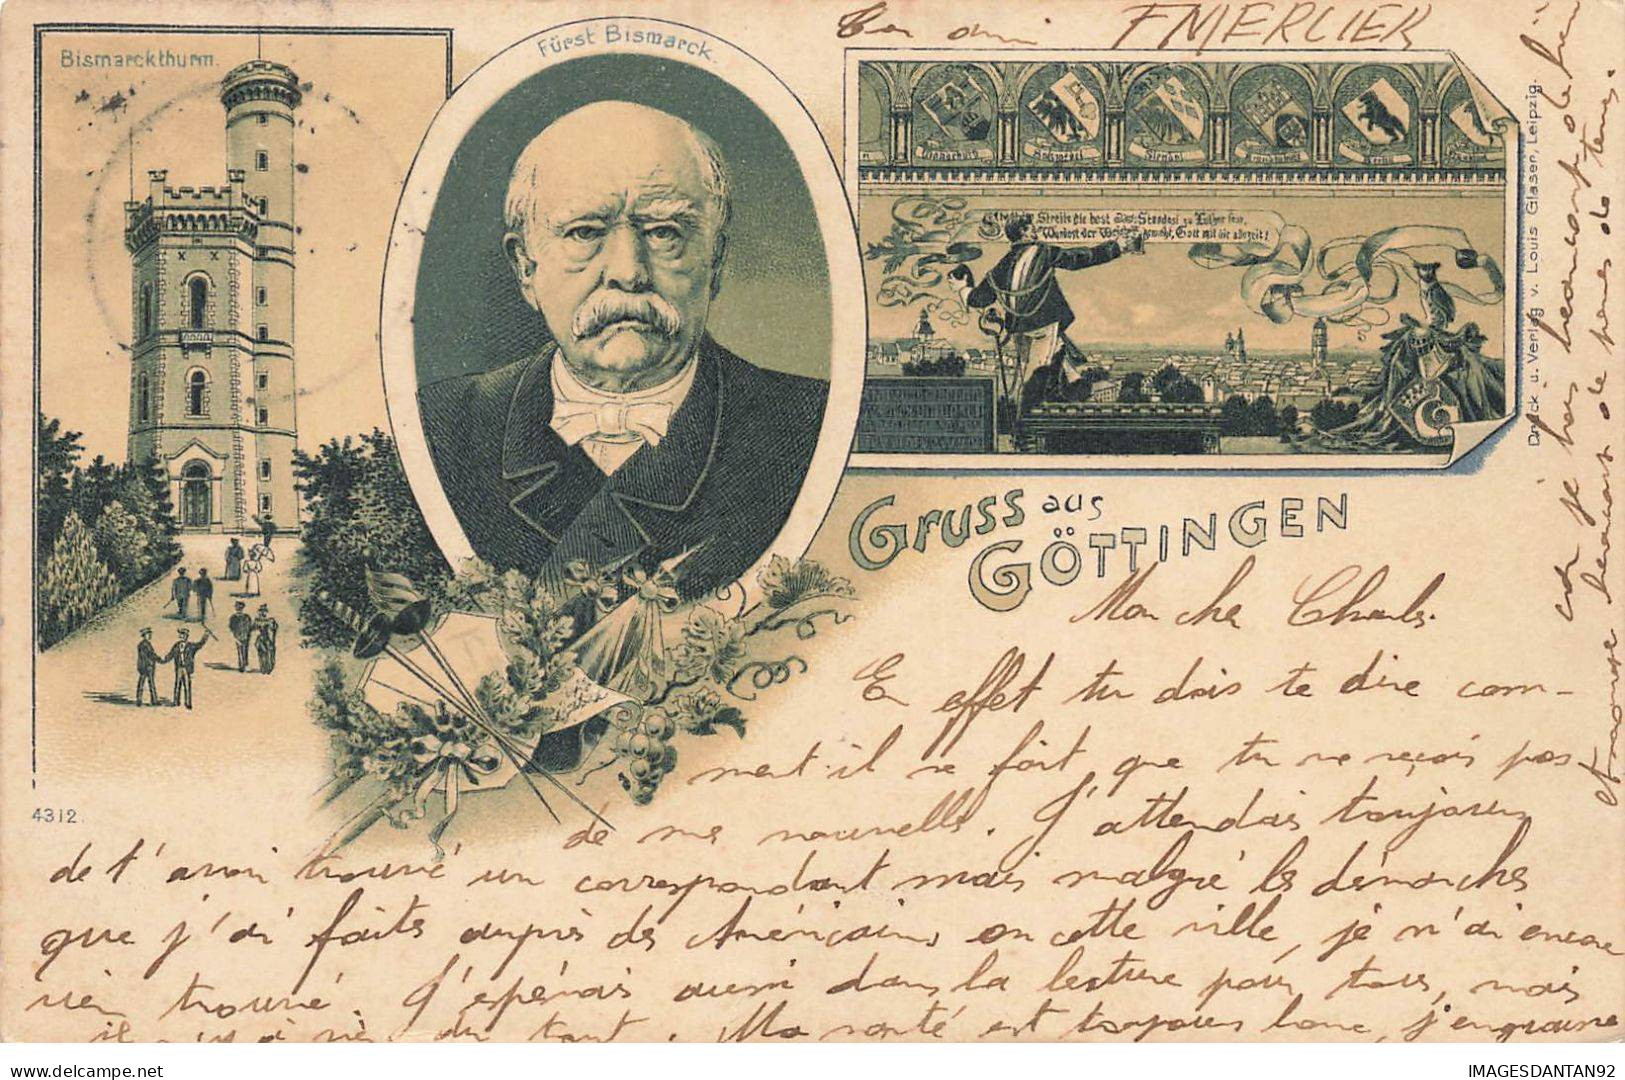 Bismarckthurm.
Fürst Bismarck.
Ton ami FMERCIER
Streite die best Das Standest zu Luther fein,
Wartest der gewählt, Gott mit dir allezeit!
Druck u. Verlag v. Louis Glaser, Leipzig.
Gruss aus
GÖTTINGEN
4312.
Mon cher Charles.
En effet tu dois te dire com-
ment il se fait que tu ne reçois pas
de mes nouvelles. J'attendais toujours
de t'avoir trouvé un correspondant mais malgré les démarches
que j'ai faites auprès des Américains en cette ville, je n'ai encore
rien trouvé. J'espérais aussi dans la lecture pour tous, mais
il n'y a rien du tout. Ma santé est toujours bonne, j'engraisse
car je bois beaucoup de bière
et mange beaucoup de pommes de terres.
IMAGESDANTAN92